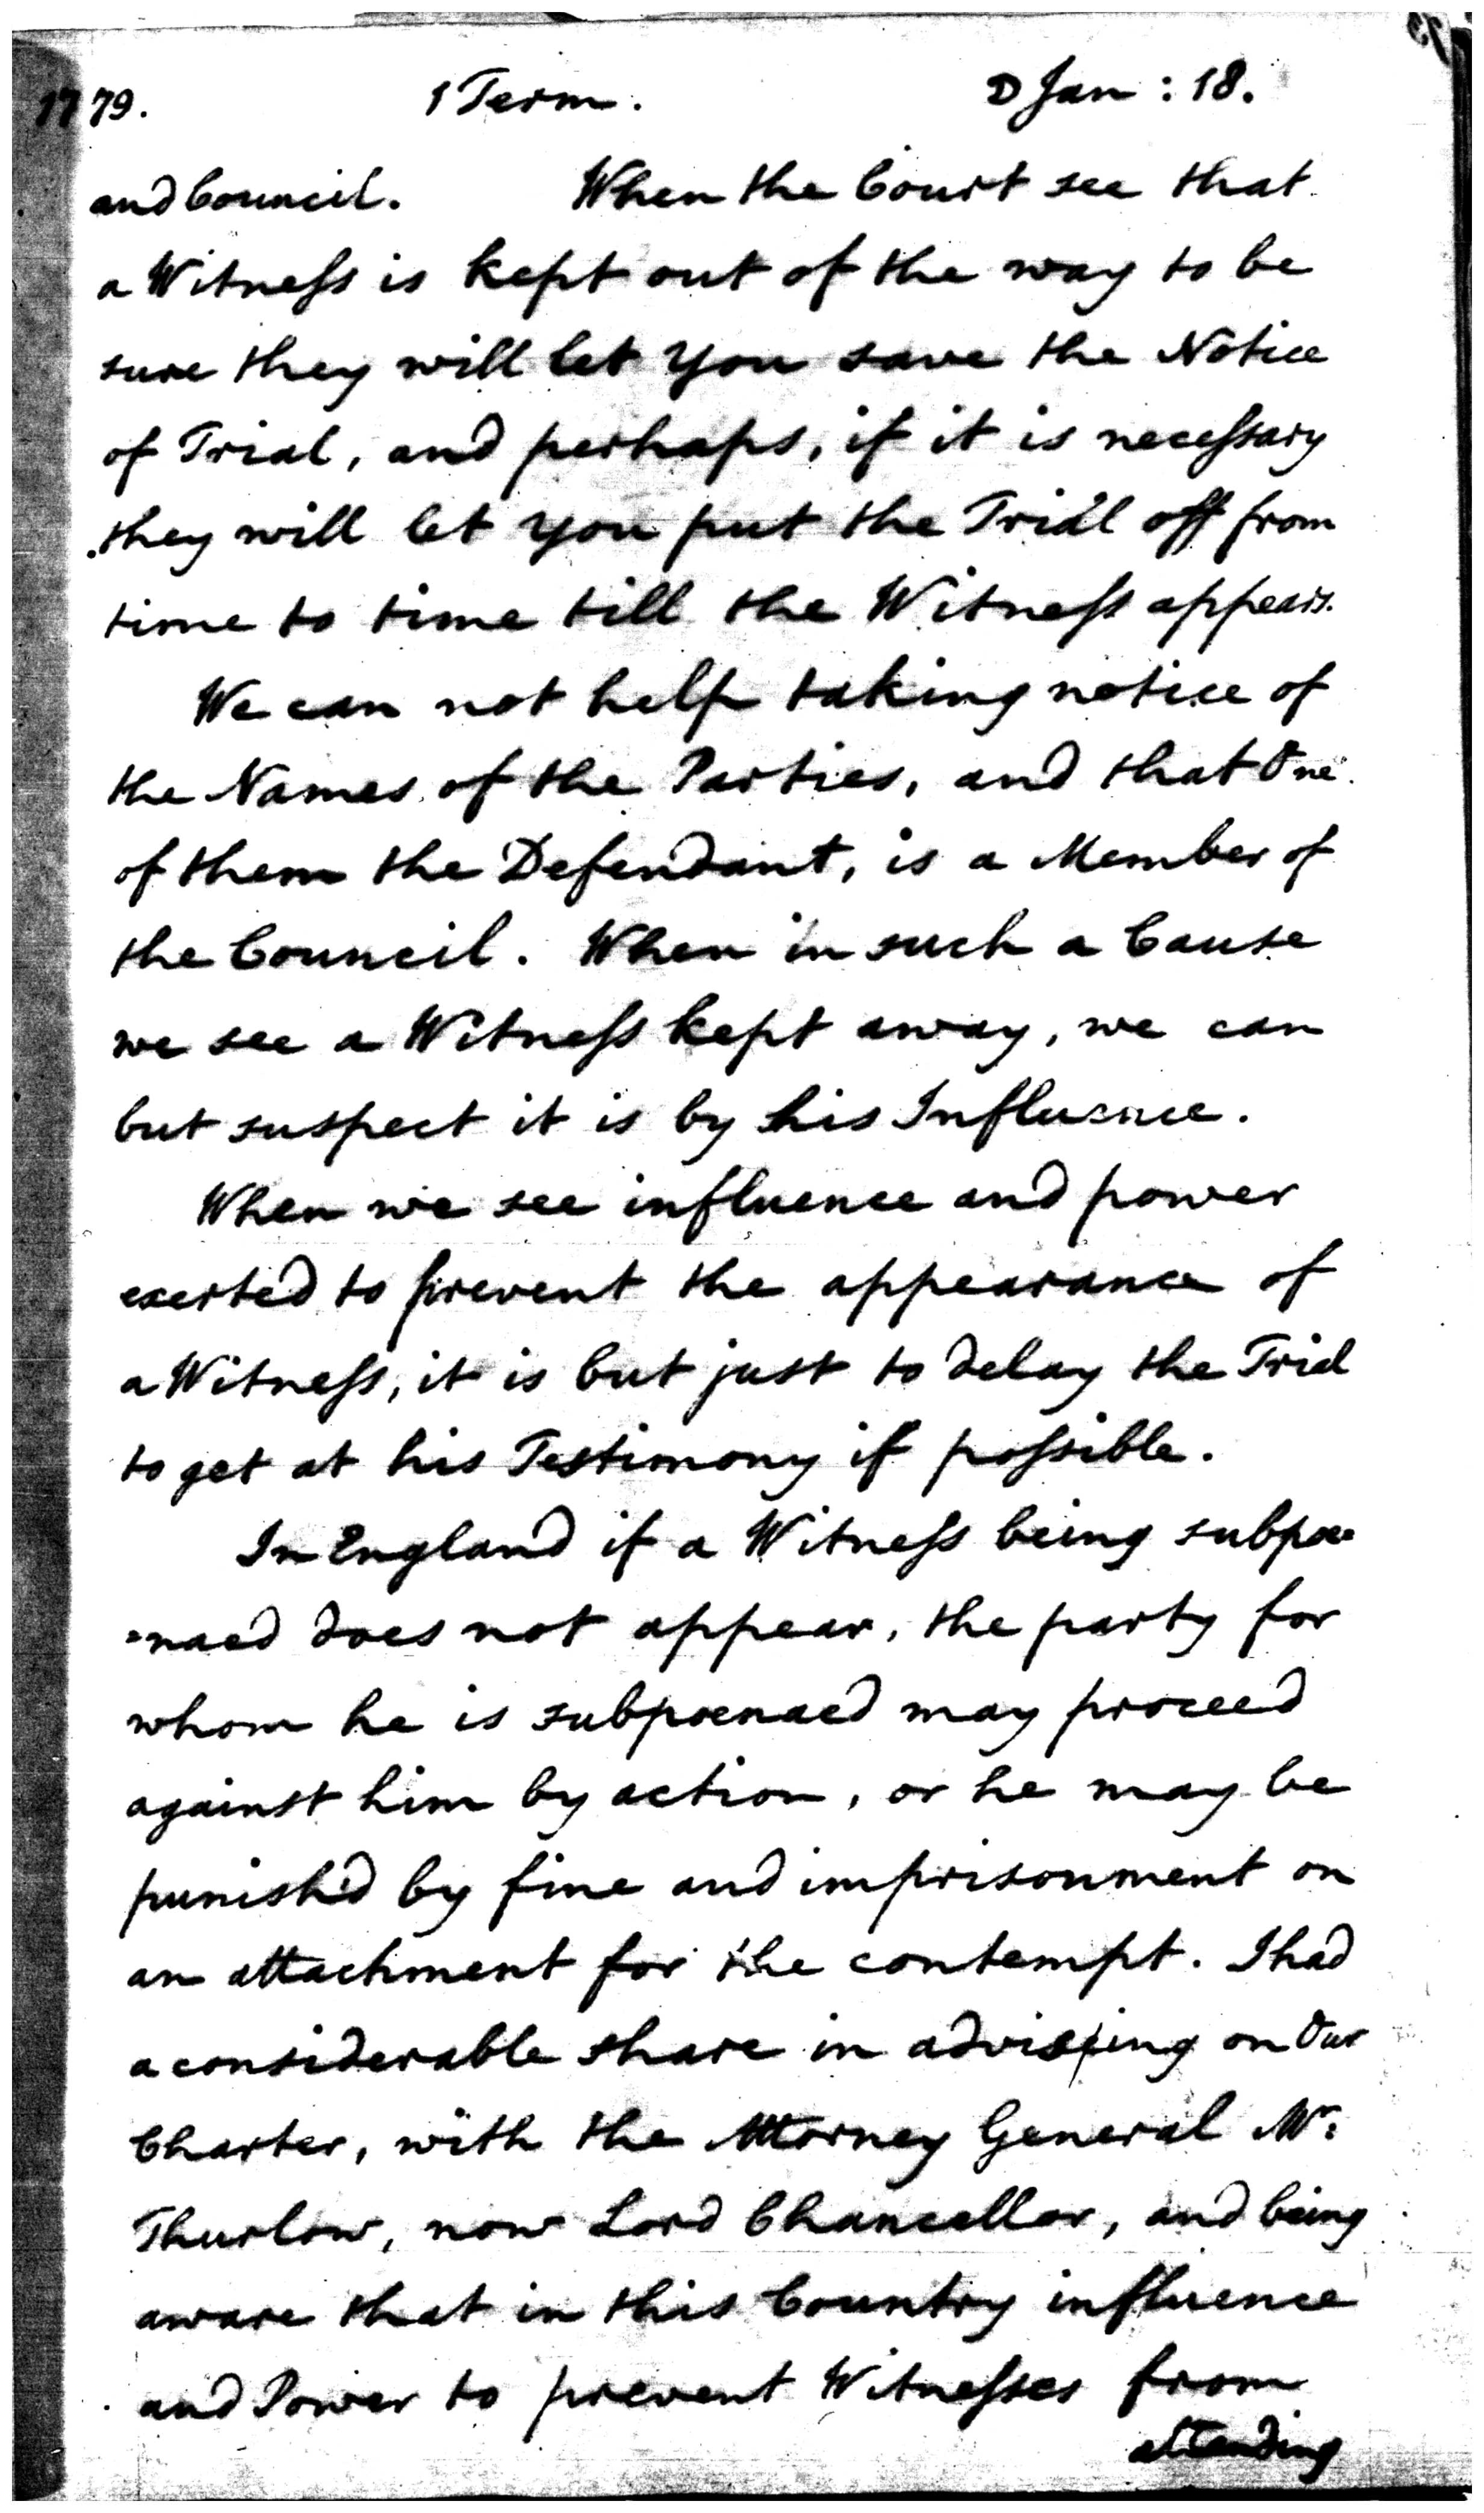 1779. 1 Term. D Jan : 18.
and Council. When the Court see that
a Witneſs is kept out of the way to be
sure they will let you save the Notice
of Trial, and perhaps, if it is neceſsary
they will let you put the Trial off from
time to time till the Witneſs appears.
We can not help taking notice of
the Names of the Parties, and that One
of them the Defendant, is a Member of
the Council. When in such a Cause
we see a Witneſs kept away, we can
but suspect it is by his Influence.
When we see influence and power
exerted to prevent the appearance of
a Witneſs, it is but just to delay the Trial
to get at his Testimony if poſsible.
In England if a Witneſs being subpoe
=naed does not appear, the party for
whom he is subpoenaed may proceed
against him by action, or he may be
punish'd by fine and imprisonment on
an attachment for the contempt. I had
a considerable share in advising on Our
Charter, with the Attorney General Mr:
Thurlow, now Lord Chancellor, and being
aware that in this Country influence
and Power to prevent Witneſses from
attending